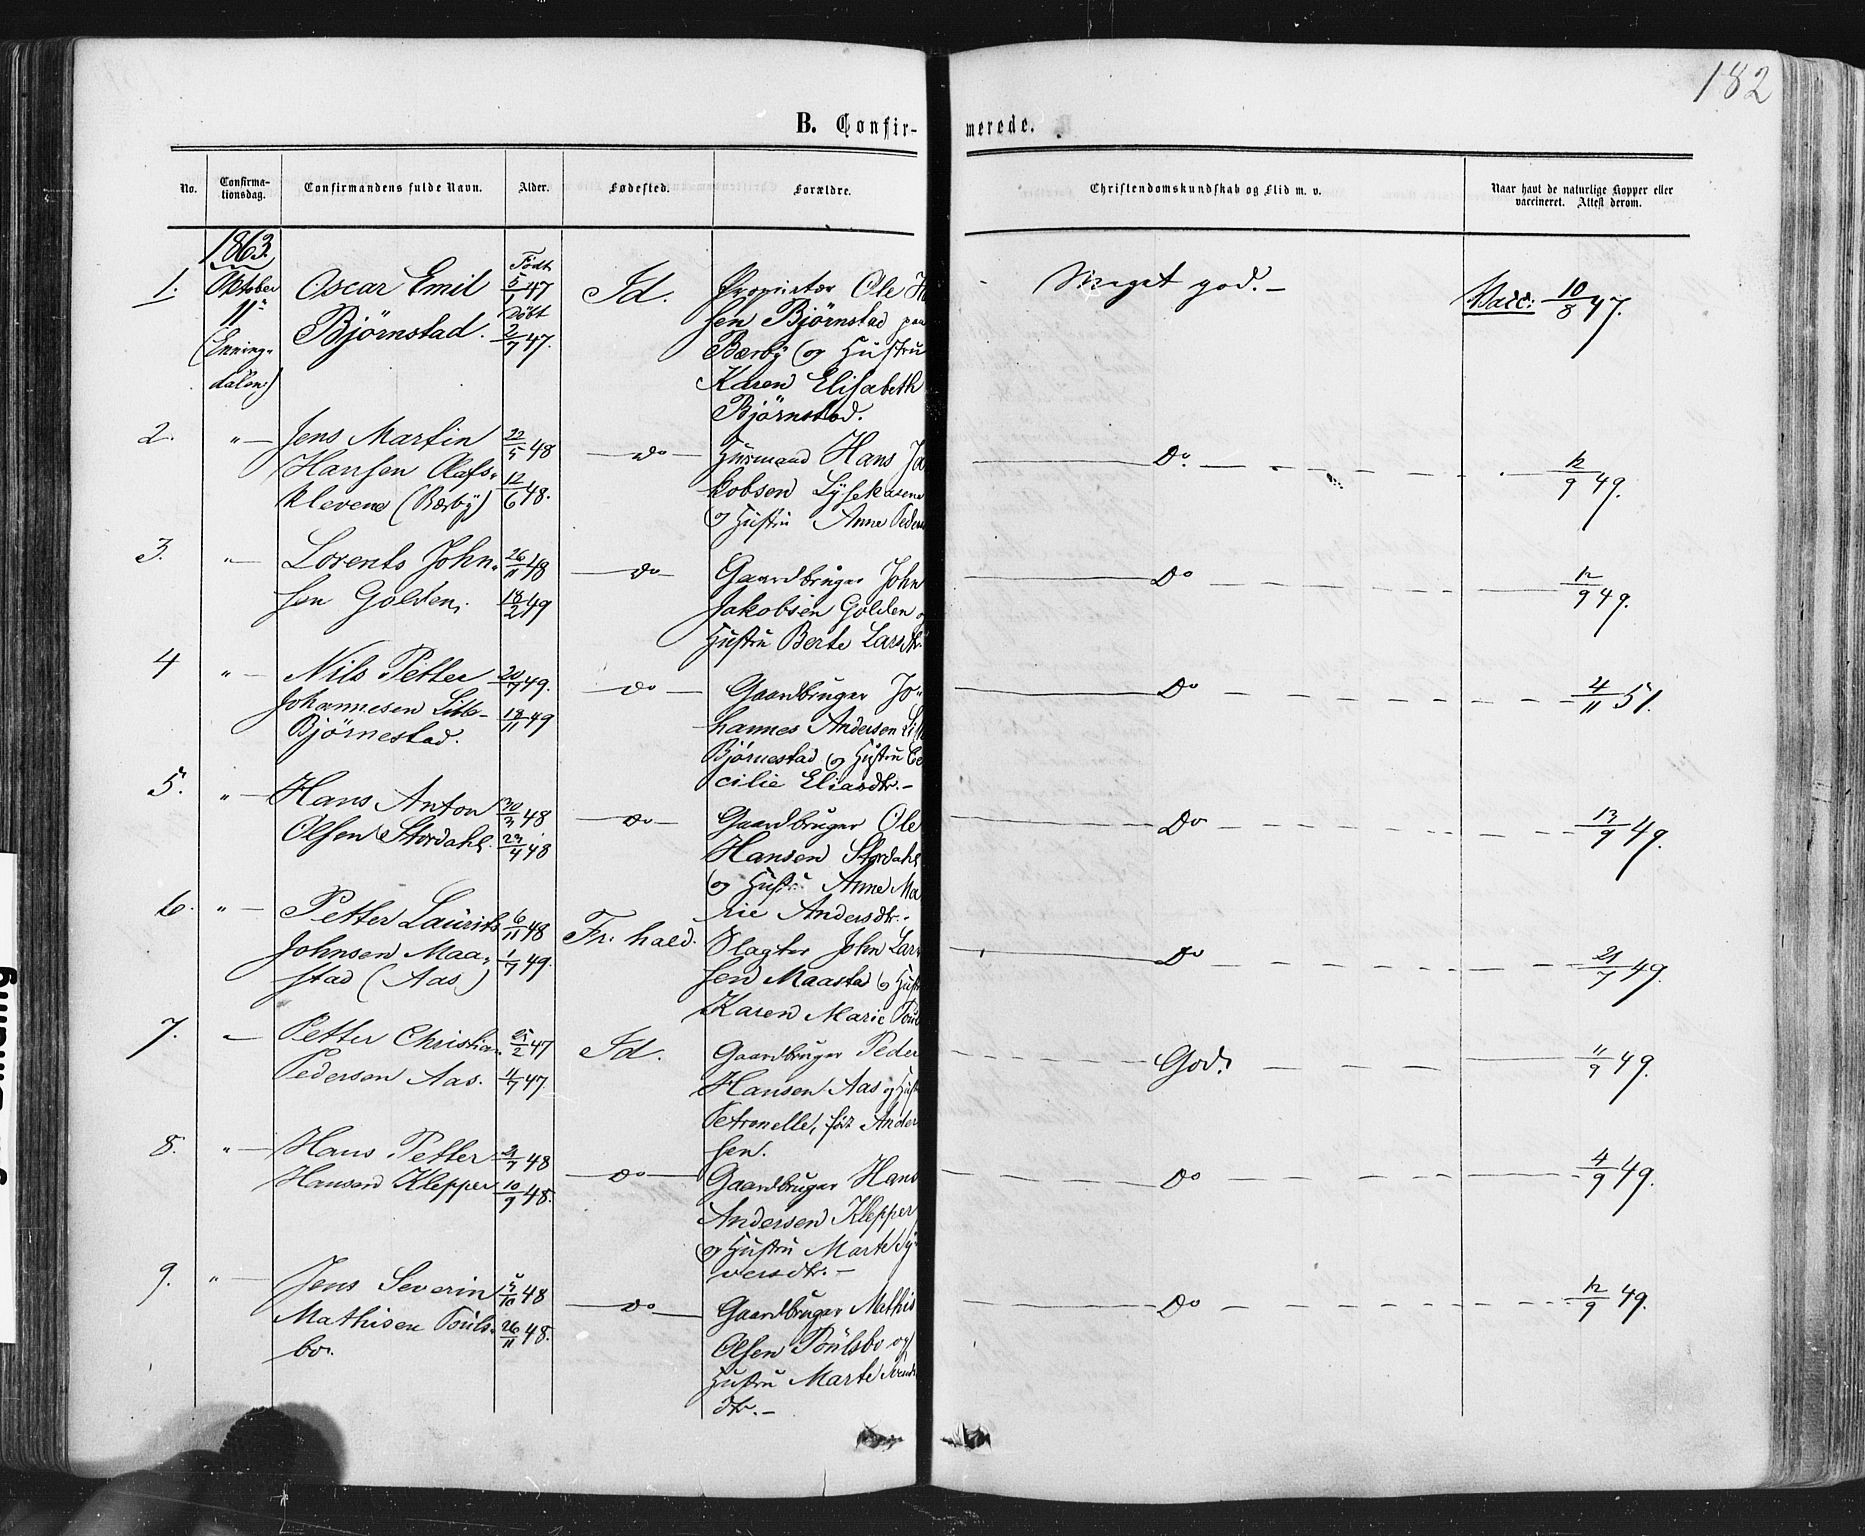 182
B. Confirmerede.
No. Confirmationsdag. Confirmandens fulde Navn. Alder. Fødested. Forældre. Christendomskundskab og Flid m. v. Naar havt de naturlige Kopper eller vaccineret. Attest derom.
1863.
1. Oktober 11te (Enningdalen) Oscar Emil Bjørnstad. Født 5/1 47 Døbt 2/7 47. Id. Proprietær Ole Hansen Bjørnstad paa Bærby og Hustru Karen Elisabeth Bjørnstad. Meget god. – Vacc: 10/8 47.
2. " – Jens Martin Hansen Olafsklevene (Bærby) 22/5 48 12/6 48. do Husmand Hans Jakobsen Lysekasene og Hustru Anne Peders Do. 12/9 49.
3. " – Lorents Johnsen Golden. 26/11 48 18/2 49 do Gaardbruger John Jakobsen Golden og Hustru Berte Larsdtr. Do 12/9 49.
4 " – Nils Petter Johannesen Lille-Bjørnestad. 20/9 49. 18/11 49 do Gaardbruger Johannes Andersen Lille Bjørnestad og Hustru Cecilie Eliasdtr. – Do 4/11 51.
5. " – Hans Anton Olsen Stordahl. 30/3 48 23/4 48 do Gaardbruger Ole Hansen Stordahl og Hustru Anne Marie Andersdtr. – Do 13/9 49.
6. " – Petter Laurits Johnsen Maastad (Aas) 6/11 48 1/7 49. Fr. hald. Slagter John Larsen Maastad og Hustru Karen Marie Do 21/7 49.
7. – Petter Christian Pedersen Aas. 25/2 47 11/7 47. Id. Gaardbruger Peder Hansen Aas og Hustru Petronelle, født Andersen. God. 11/9 49.
8. " – Hans Petter Hansen Klepper 21/7 48 10/9 48. do Gaardbruger Hans Andersen Klepper og Hustru Marte Syversdtr. – Do 4/9 49.
9. " – Jens Severin Mathisen Poulsbo. 5/10 48 26/11 48. do Gaardbruger Mathis Olsen Poülsbo og Hustru Marte Svends dtr. – Do 12/9 49.